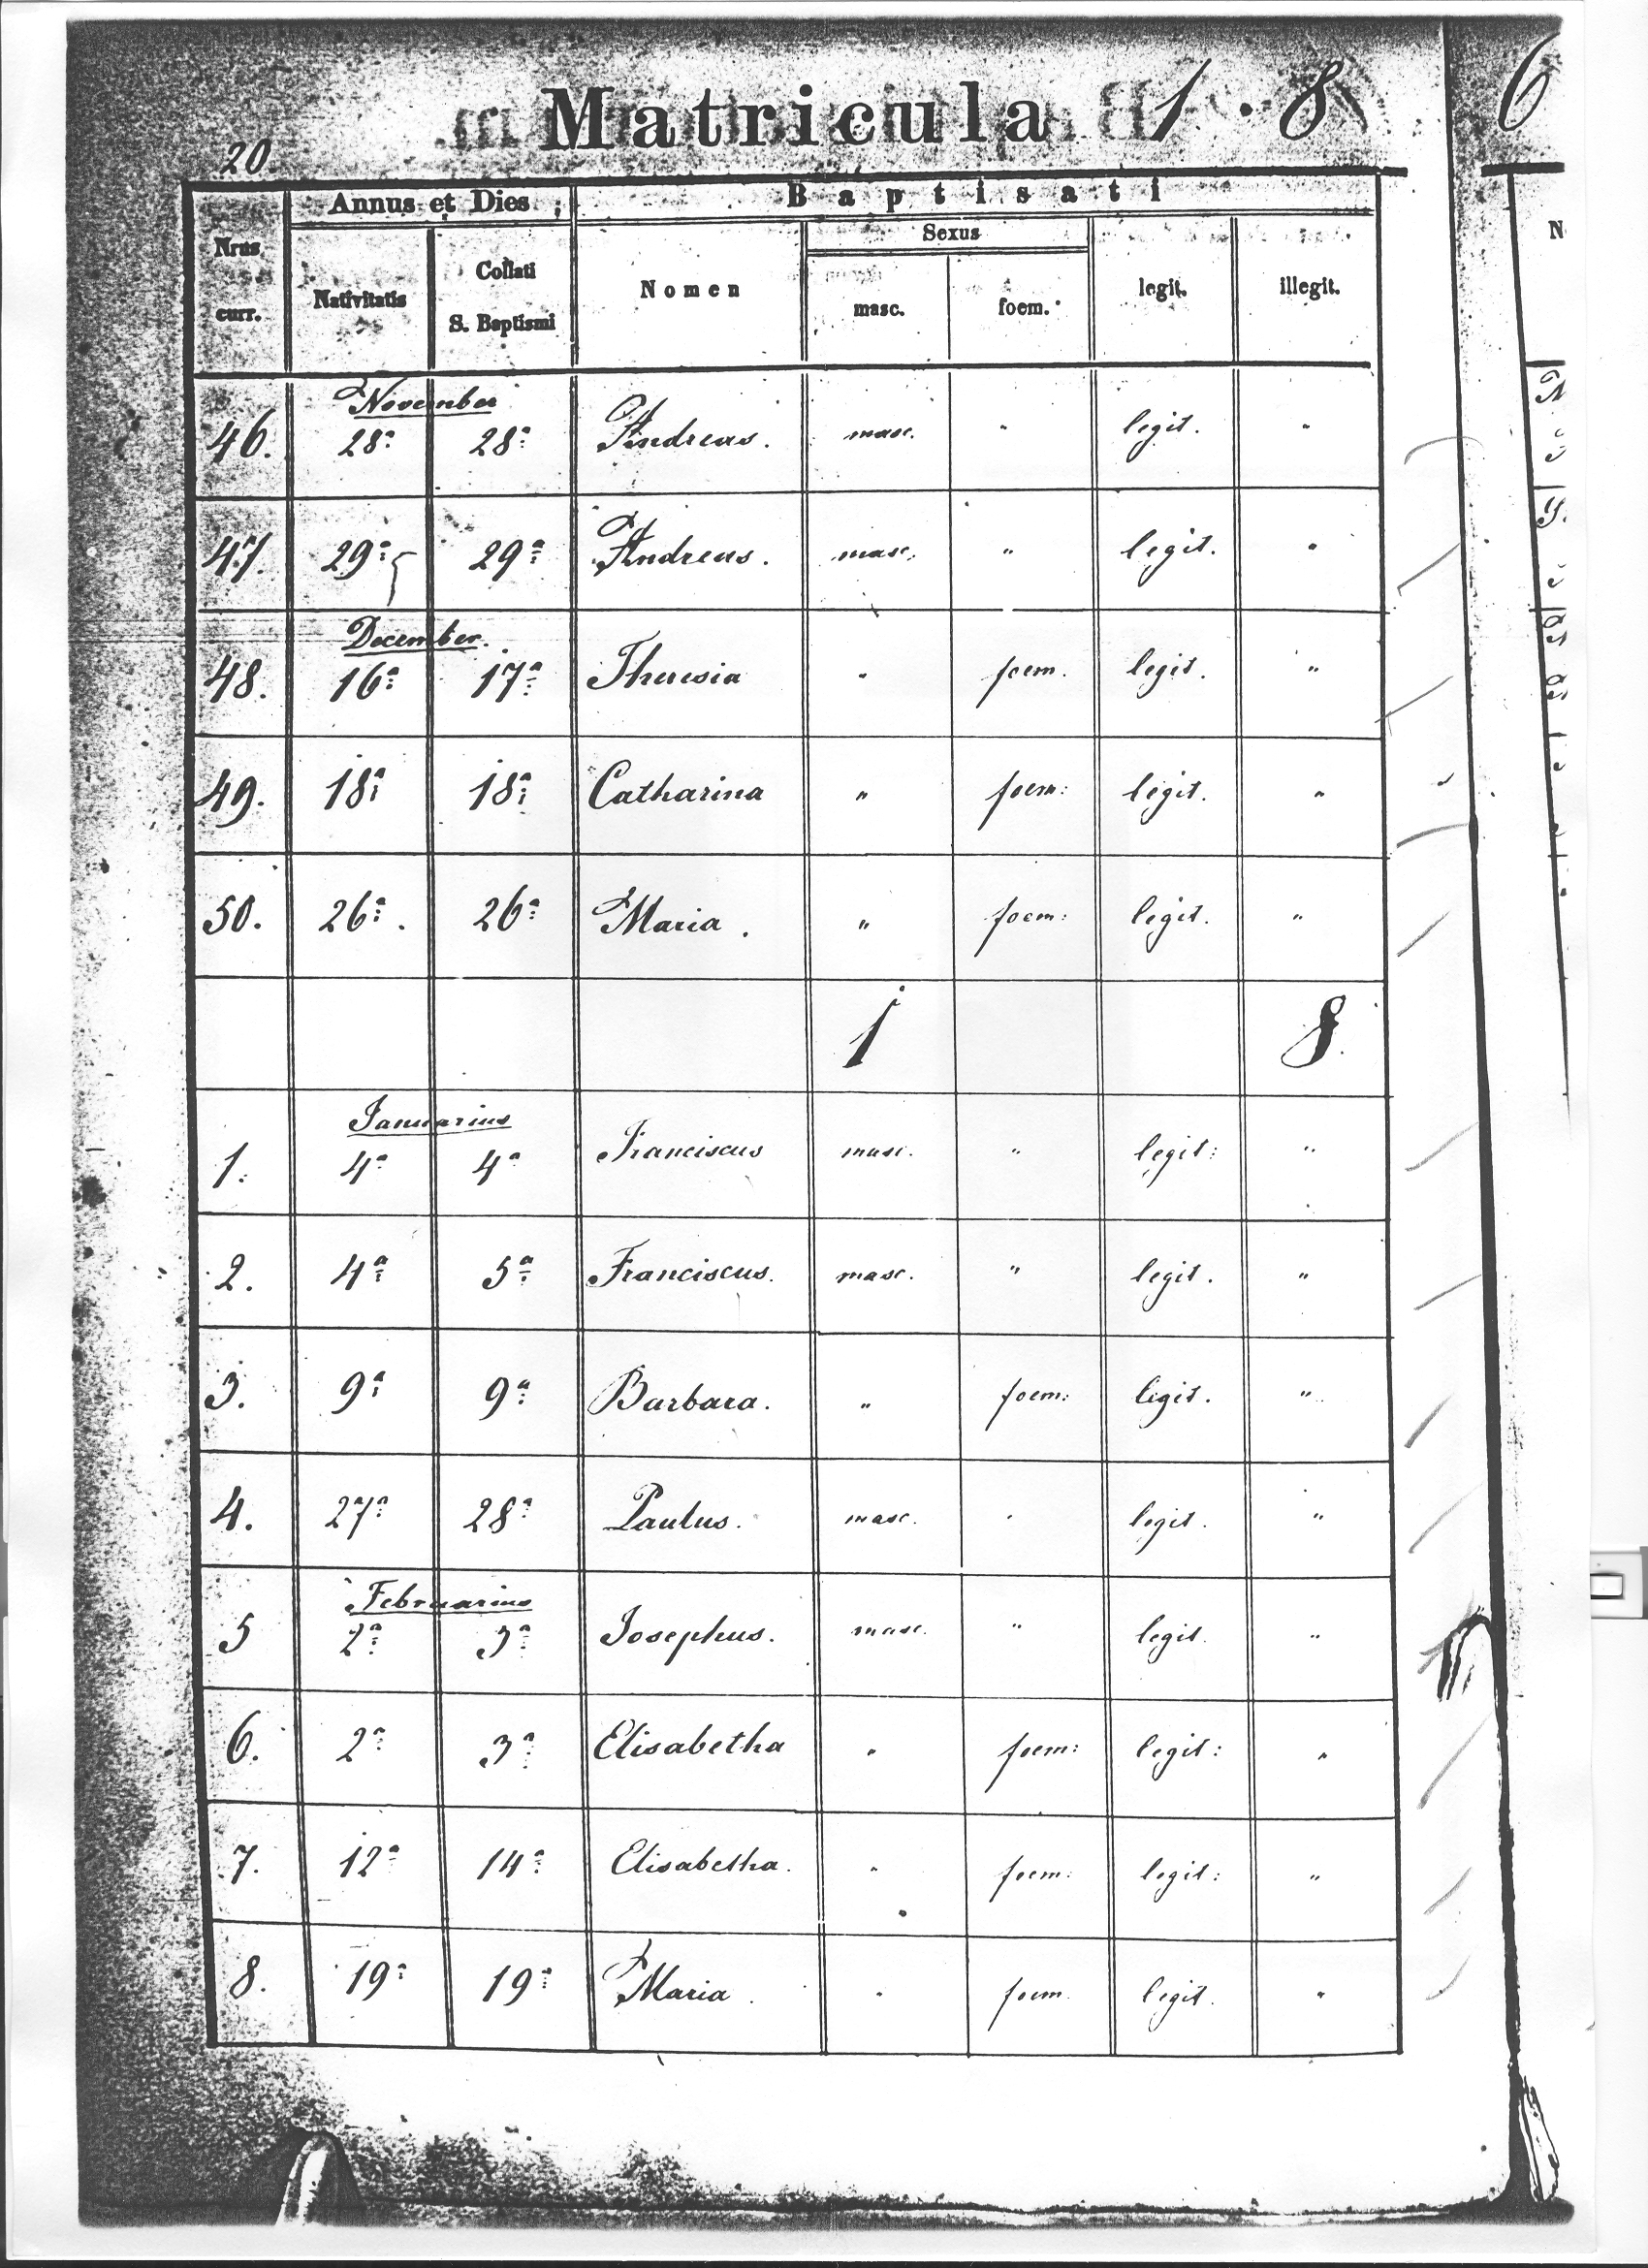 20.
Matricula 1 . 8 6
Annus et Dies
Baptisati
Nrus curr.
Nativitatis
Collati S. Baptismi
Nomen
Sexus
masc.
foem.
legit.
illegit.
November
46. 28a 28a Andreas. masc. " legit. "
47. 29a 29a Andreas. masc. " legit. "
December.
48. 16a 17a Theresia " foem. legit. "
49. 18a 18a Catharina " foem: legit. "
50. 26a. 26a Maria. " foem: legit. "
1 8
Januarius
1. 4a 4a Franciscus masc. " legit: "
2. 4a 5a Franciscus. masc. " legit. "
3. 9a 9a Barbara. " foem: legit. "
4. 27a 28a Paulus. masc. " legit. "
Februarius
5 2a 3a Josephus. masc. " legit. "
6. 2a 3a Elisabetha " foem: legit: "
7. 12a 14a Elisabetha. " foem: legit: "
8. 19a 19a Maria. " foem. legit. "